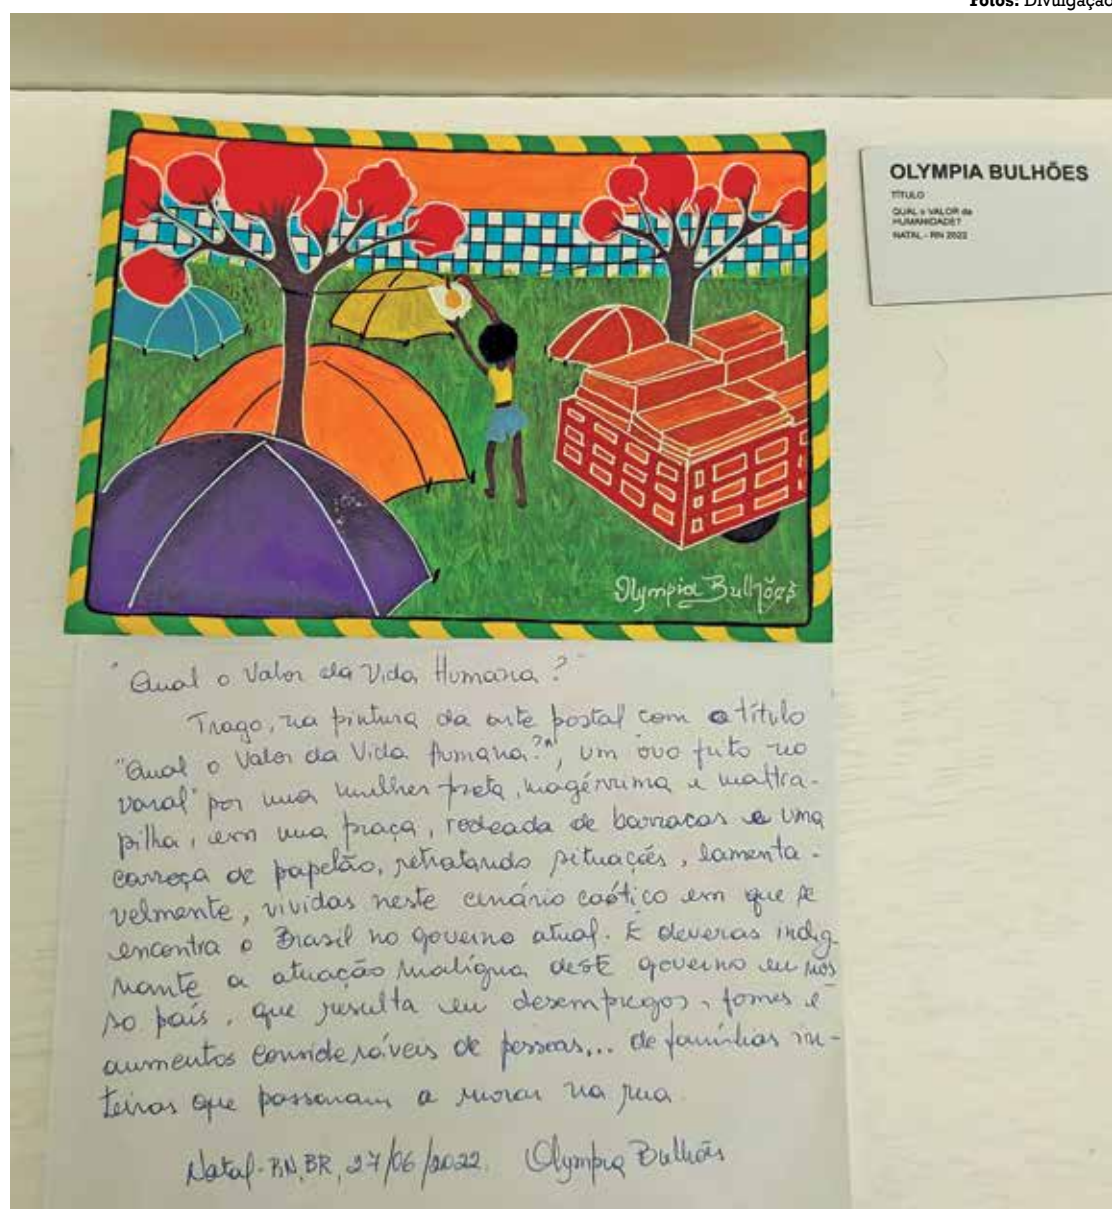 Fotos: Divulgação
OLYMPIA BULHÕES
TÍTULO
QUAL o VALOR da
HUMANIDADE?
NATAL - RN 2022
Olympia Bulhões
"Qual o Valor da Vida Humana?"
Trago, na pintura da arte postal com o título
"Qual o Valor da Vida humana?", um "ovo frito no
varal" por uma mulher preta, magérrima e maltra-
pilha, em uma praça, rodeada de barracas e uma
carroça de papelão, retratando situações, lamenta-
velmente, vividas neste cenário caótico em que se
encontra o Brasil no governo atual. É deveras indig-
nante a atuação maligna deste governo em nos
so país, que resulta em desempregos, fomes e
aumentos consideráveis de pessoas... de famílias in-
teiras que passaram a morar na rua.
Natal-RN, BR, 27/06/2022. Olympia Bulhões